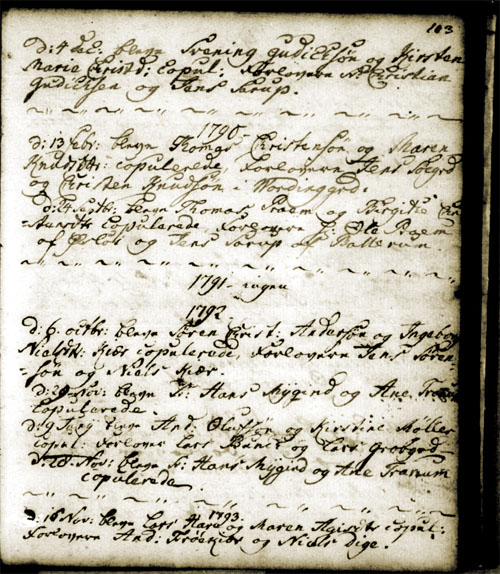 103
d: 4 Dec: blev Svening Gudichsøn og Kirsten
Maria Christd: copul: Forlovere Christian
Gudichsen og Jens Sarup.
1790
d: 13 blev Thomas Christensøn og Maren
Knudsdtr: copulerede, Forlovere Jens
og Christen Knudsøn i Nordinggrd.
blev Thomas Praem og Birgitte
copulerede Forlovere Ole Praem
af og Jens Sarup af Ballerum
1791 - ingen
1792
d: 6 octbr: blev Søren Christ: Andersøn og Ingeborg
Nielsdtr: Kjær copulerede, Forlovere Jens Søren-
søn og Niels Kjær.
d: Nov: blev Sr: Hans Mygind og Ane Tranum
copulerede.
d: 9 blev And: Olufsøn og Kirstine Møller
copul: Forlovere Lars og Lars
d: 28 Nov: blev Sr: Hans Mygind og Ane Tranum
copulerede.
1793
d: 16 Nov: blev Lars og Maren copul:
Forlovere And: og Niels Dige.